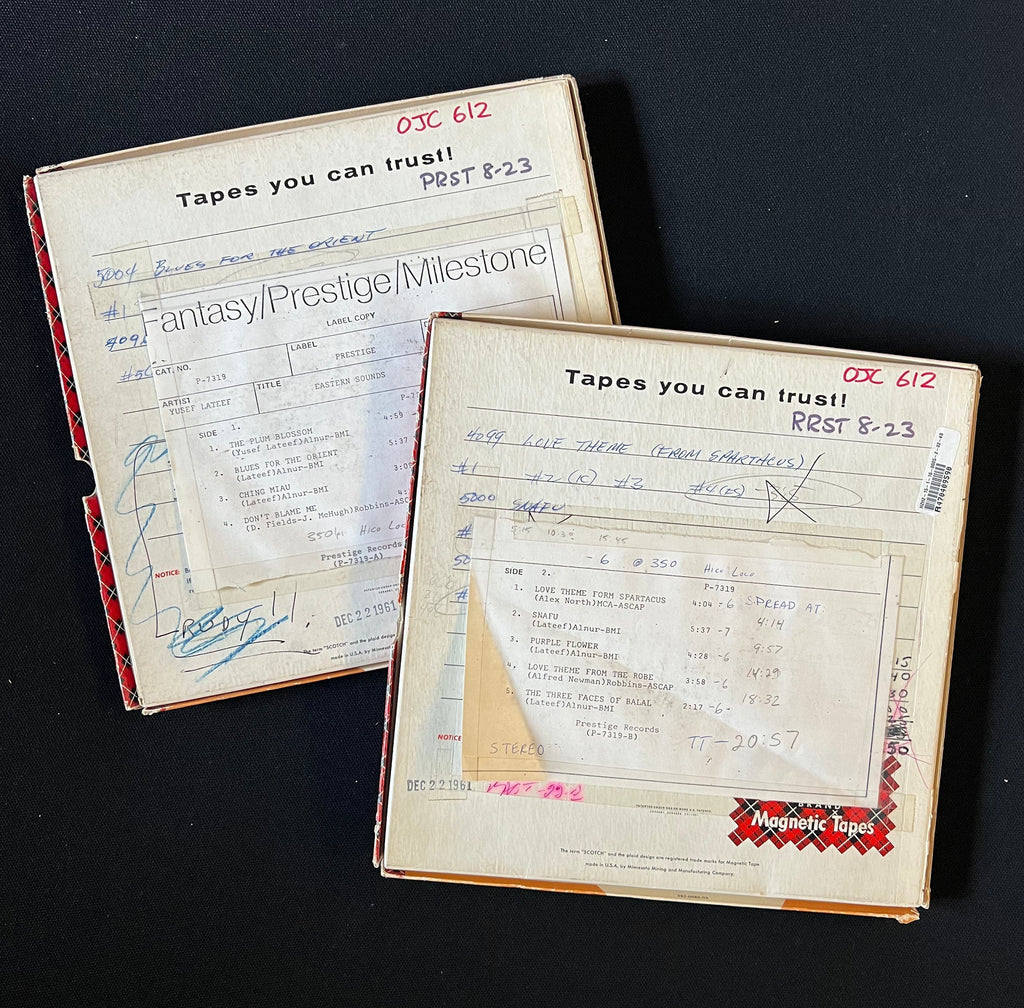 OJC 612
Tapes you can trust!
PRST 8-23
5004 BLUES FOR THE ORIENT
#1
Fantasy/Prestige/Milestone
LABEL COPY
CAT. NO.
P-7319
LABEL
PRESTIGE
ARTIST
YUSEF LATEEF
TITLE
EASTERN SOUNDS
SIDE 1.
1. THE PLUM BLOSSOM 4:59
(Yusef Lateef)Alnur-BMI
2. BLUES FOR THE ORIENT 5:37
(Lateef)Alnur-BMI
3. CHING MIAU
(Lateef)Alnur-BMI
4. DON'T BLAME ME
(D. Fields-J. McHugh)Robbins-
Prestige Records
(P-7319-A)
NOTICE:
RUDY!!
DEC 22 1961
The term "SCOTCH" and the plaid
made in U.S.A. by
OJC 612
Tapes you can trust!
RRST 8-23
4099 LOVE THEME (FROM SPARTACUS)
#1 #2 #3
5000 SNAFU
10:30 15:45
-6 @ 350 HICO LOCO
SIDE 2. P-7319
1. LOVE THEME FORM SPARTACUS 4:04 -6 SPREAD AT:
(Alex North)MCA-ASCAP 4:14
2. SNAFU
(Lateef)Alnur-BMI 5:37 -7
3. PURPLE FLOWER 9:57
(Lateef)Alnur-BMI 4:28 -6
4. LOVE THEME FROM THE ROBE 14:29
(Alfred Newman)Robbins-ASCAP 3:58 -6
5. THE THREE FACES OF BALAL 18:32
(Lateef)Alnur-BMI 2:17 -6-
Prestige Records
(P-7319-B)
TT-20:57
STEREO
NOTICE
DEC 22 1961
BRAND
Magnetic Tapes
The term "SCOTCH" and the plaid design are registered trade marks for Magnetic Tape
made in U.S.A. by Minnesota Mining and Manufacturing Company.